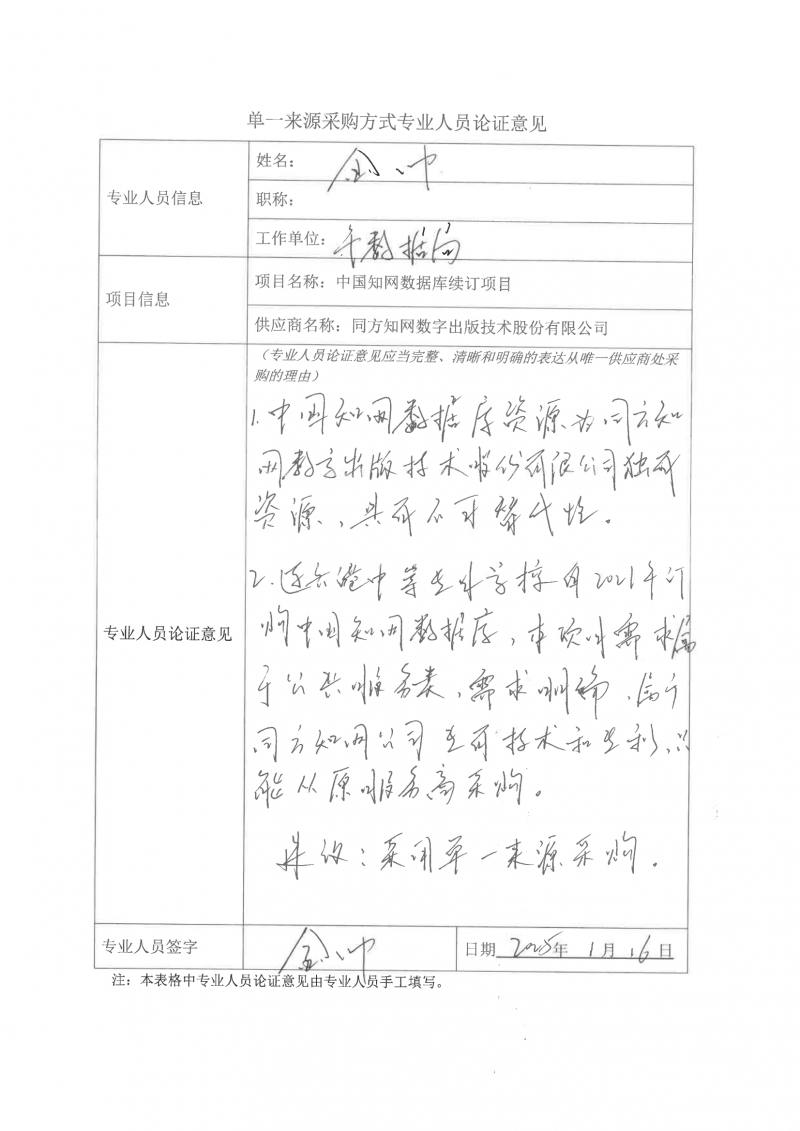 单一来源采购方式专业人员论证意见
专业人员信息
姓名：金
职称：
工作单位：市数据局
项目信息
项目名称：中国知网数据库续订项目
供应商名称：同方知网数字出版技术股份有限公司
专业人员论证意见
（专业人员论证意见应当完整、清晰和明确的表达从唯一供应商处采
购的理由）
1.中国知网数据库资源为同方知
网数字出版技术股份有限公司独有
资源，具有不可替代性。
2.连云港中等专业学校自2021年订
购中国知网数据库，本项目需求属
于公共服务类，需求明确，属于
同方知网公司专有技术和专利，只
能从原服务商采购。
建议：采用单一来源采购。
专业人员签字
金
日期 2025年 1月 16日
注：本表格中专业人员论证意见由专业人员手工填写。